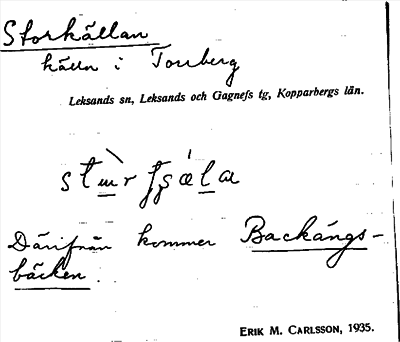 Storkällan
källa i Torrberg
Leksands sn, Leksands och Gagnefs tg, Kopparbergs län.
Därifrån kommer Backängs-
bäcken.
ERIK M. CARLSSON, 1935.